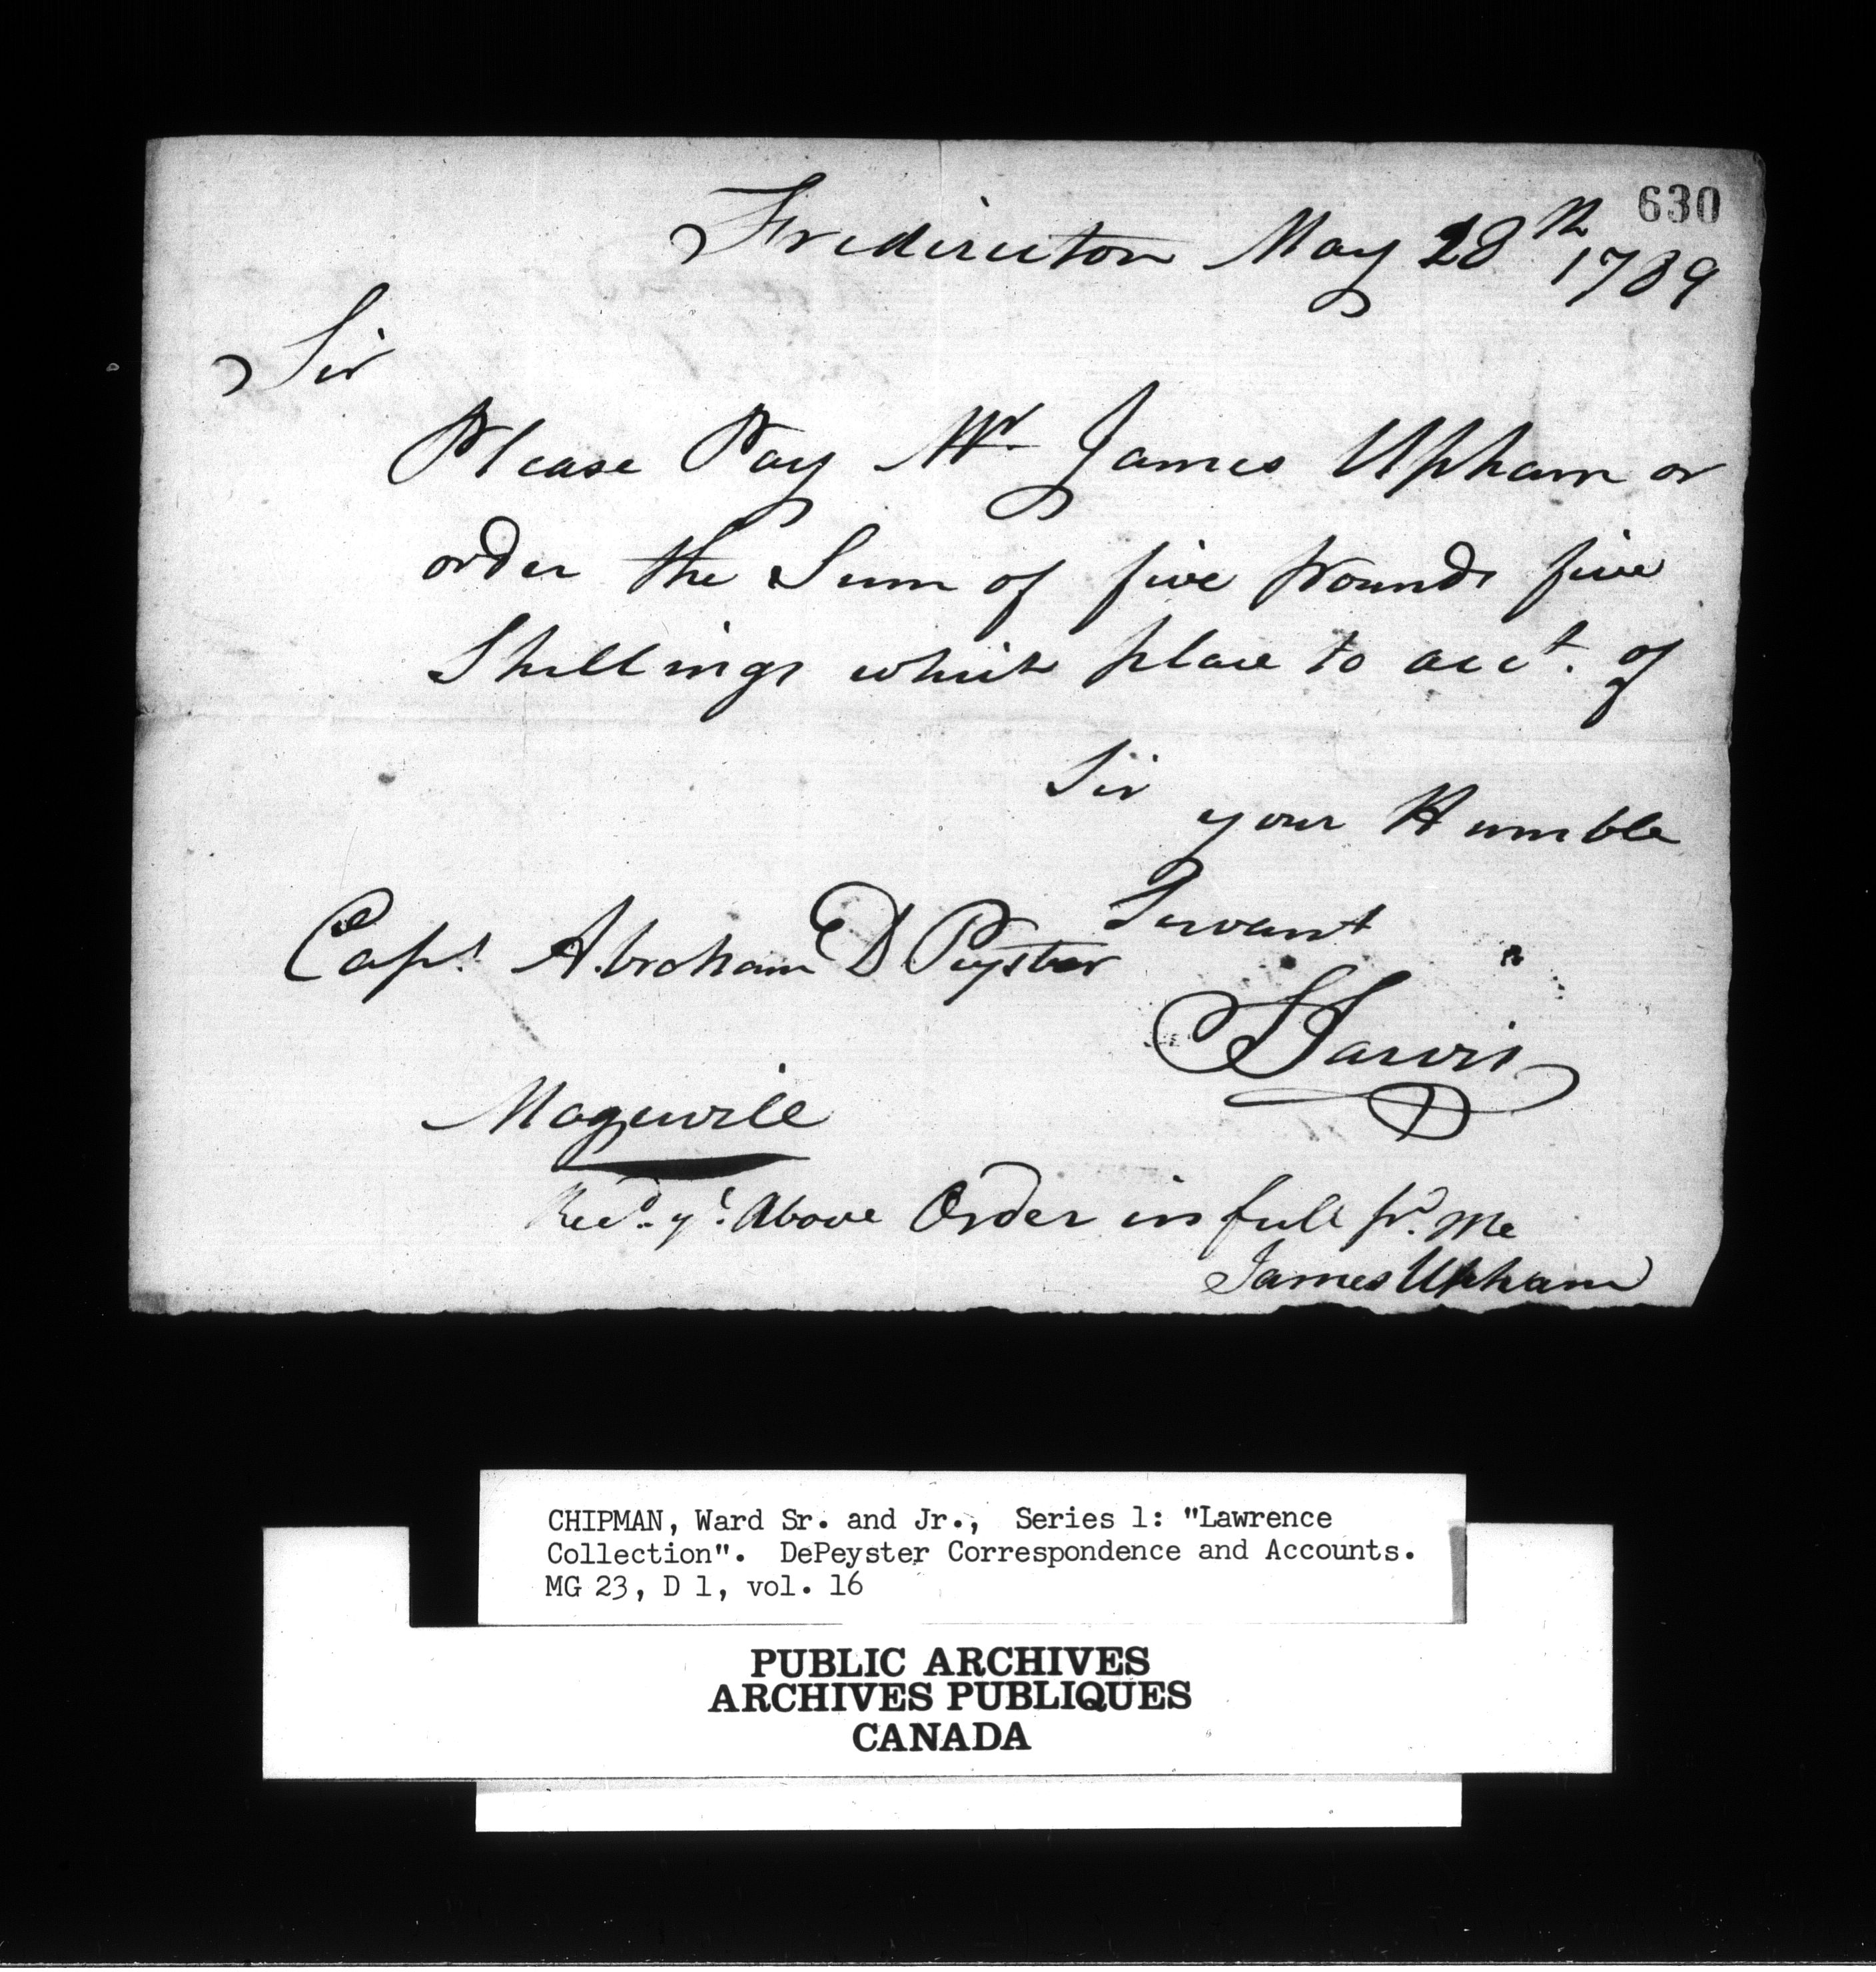 630
Fredireiton May 28th 1789
Sir
Please Pay Mr James Upham or
order the Sum of five pounds five
Shillings which place to acct. of
Sir
your Humble
Servant
Capt Abraham D Peyster
Jarvis
Magerville
Recd. ye. Above Order in full pr. Me
James Upham
CHIPMAN, Ward Sr. and Jr., Series 1: "Lawrence
Collection". DePeyster Correspondence and Accounts.
MG 23, D 1, vol. 16
PUBLIC ARCHIVES
ARCHIVES PUBLIQUES
CANADA